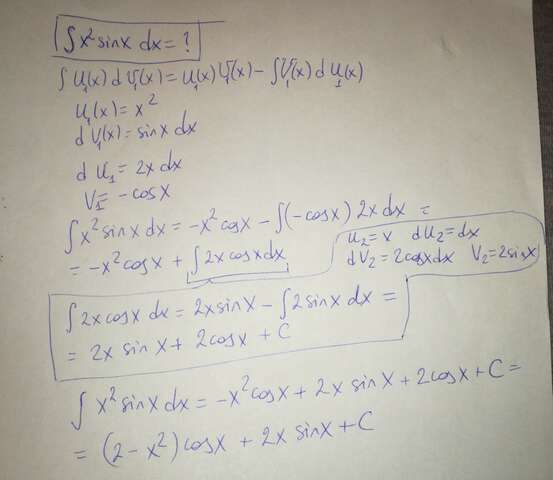 ∫x²sinx dx = ?
∫ U₁(x) d V₁(x) = U₁(x) V₁(x) - ∫V₁(x) d U₁(x)
U₁(x) = x²
d V₁(x) = sinx dx
d U₁ = 2x dx
V₁ = - cosx
∫x² sinx dx = -x² cosx - ∫(-cosx) 2x dx =
= -x² cosx + ∫2x cosx dx
U₂ = x dU₂ = dx
dV₂ = 2cosx dx V₂ = 2sinx
∫2x cosx dx = 2x sinx - ∫2 sinx dx =
= 2x sinx + 2cosx + C
∫ x² sinx dx = -x² cosx + 2x sinx + 2cosx + C =
= (2 - x²) cosx + 2x sinx + C